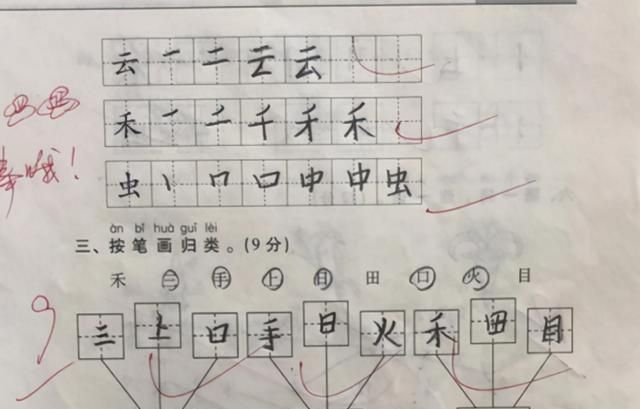 云 一 二 云 云
禾 一 二 千 禾 禾
虫 丶 口 口 中 中 虫
àn bǐ huà guī lèi
三、按笔画归类。(9分)
禾 三 手 上 日 田 口 火 目
9
三 上 口 手 日 火 禾 田 目